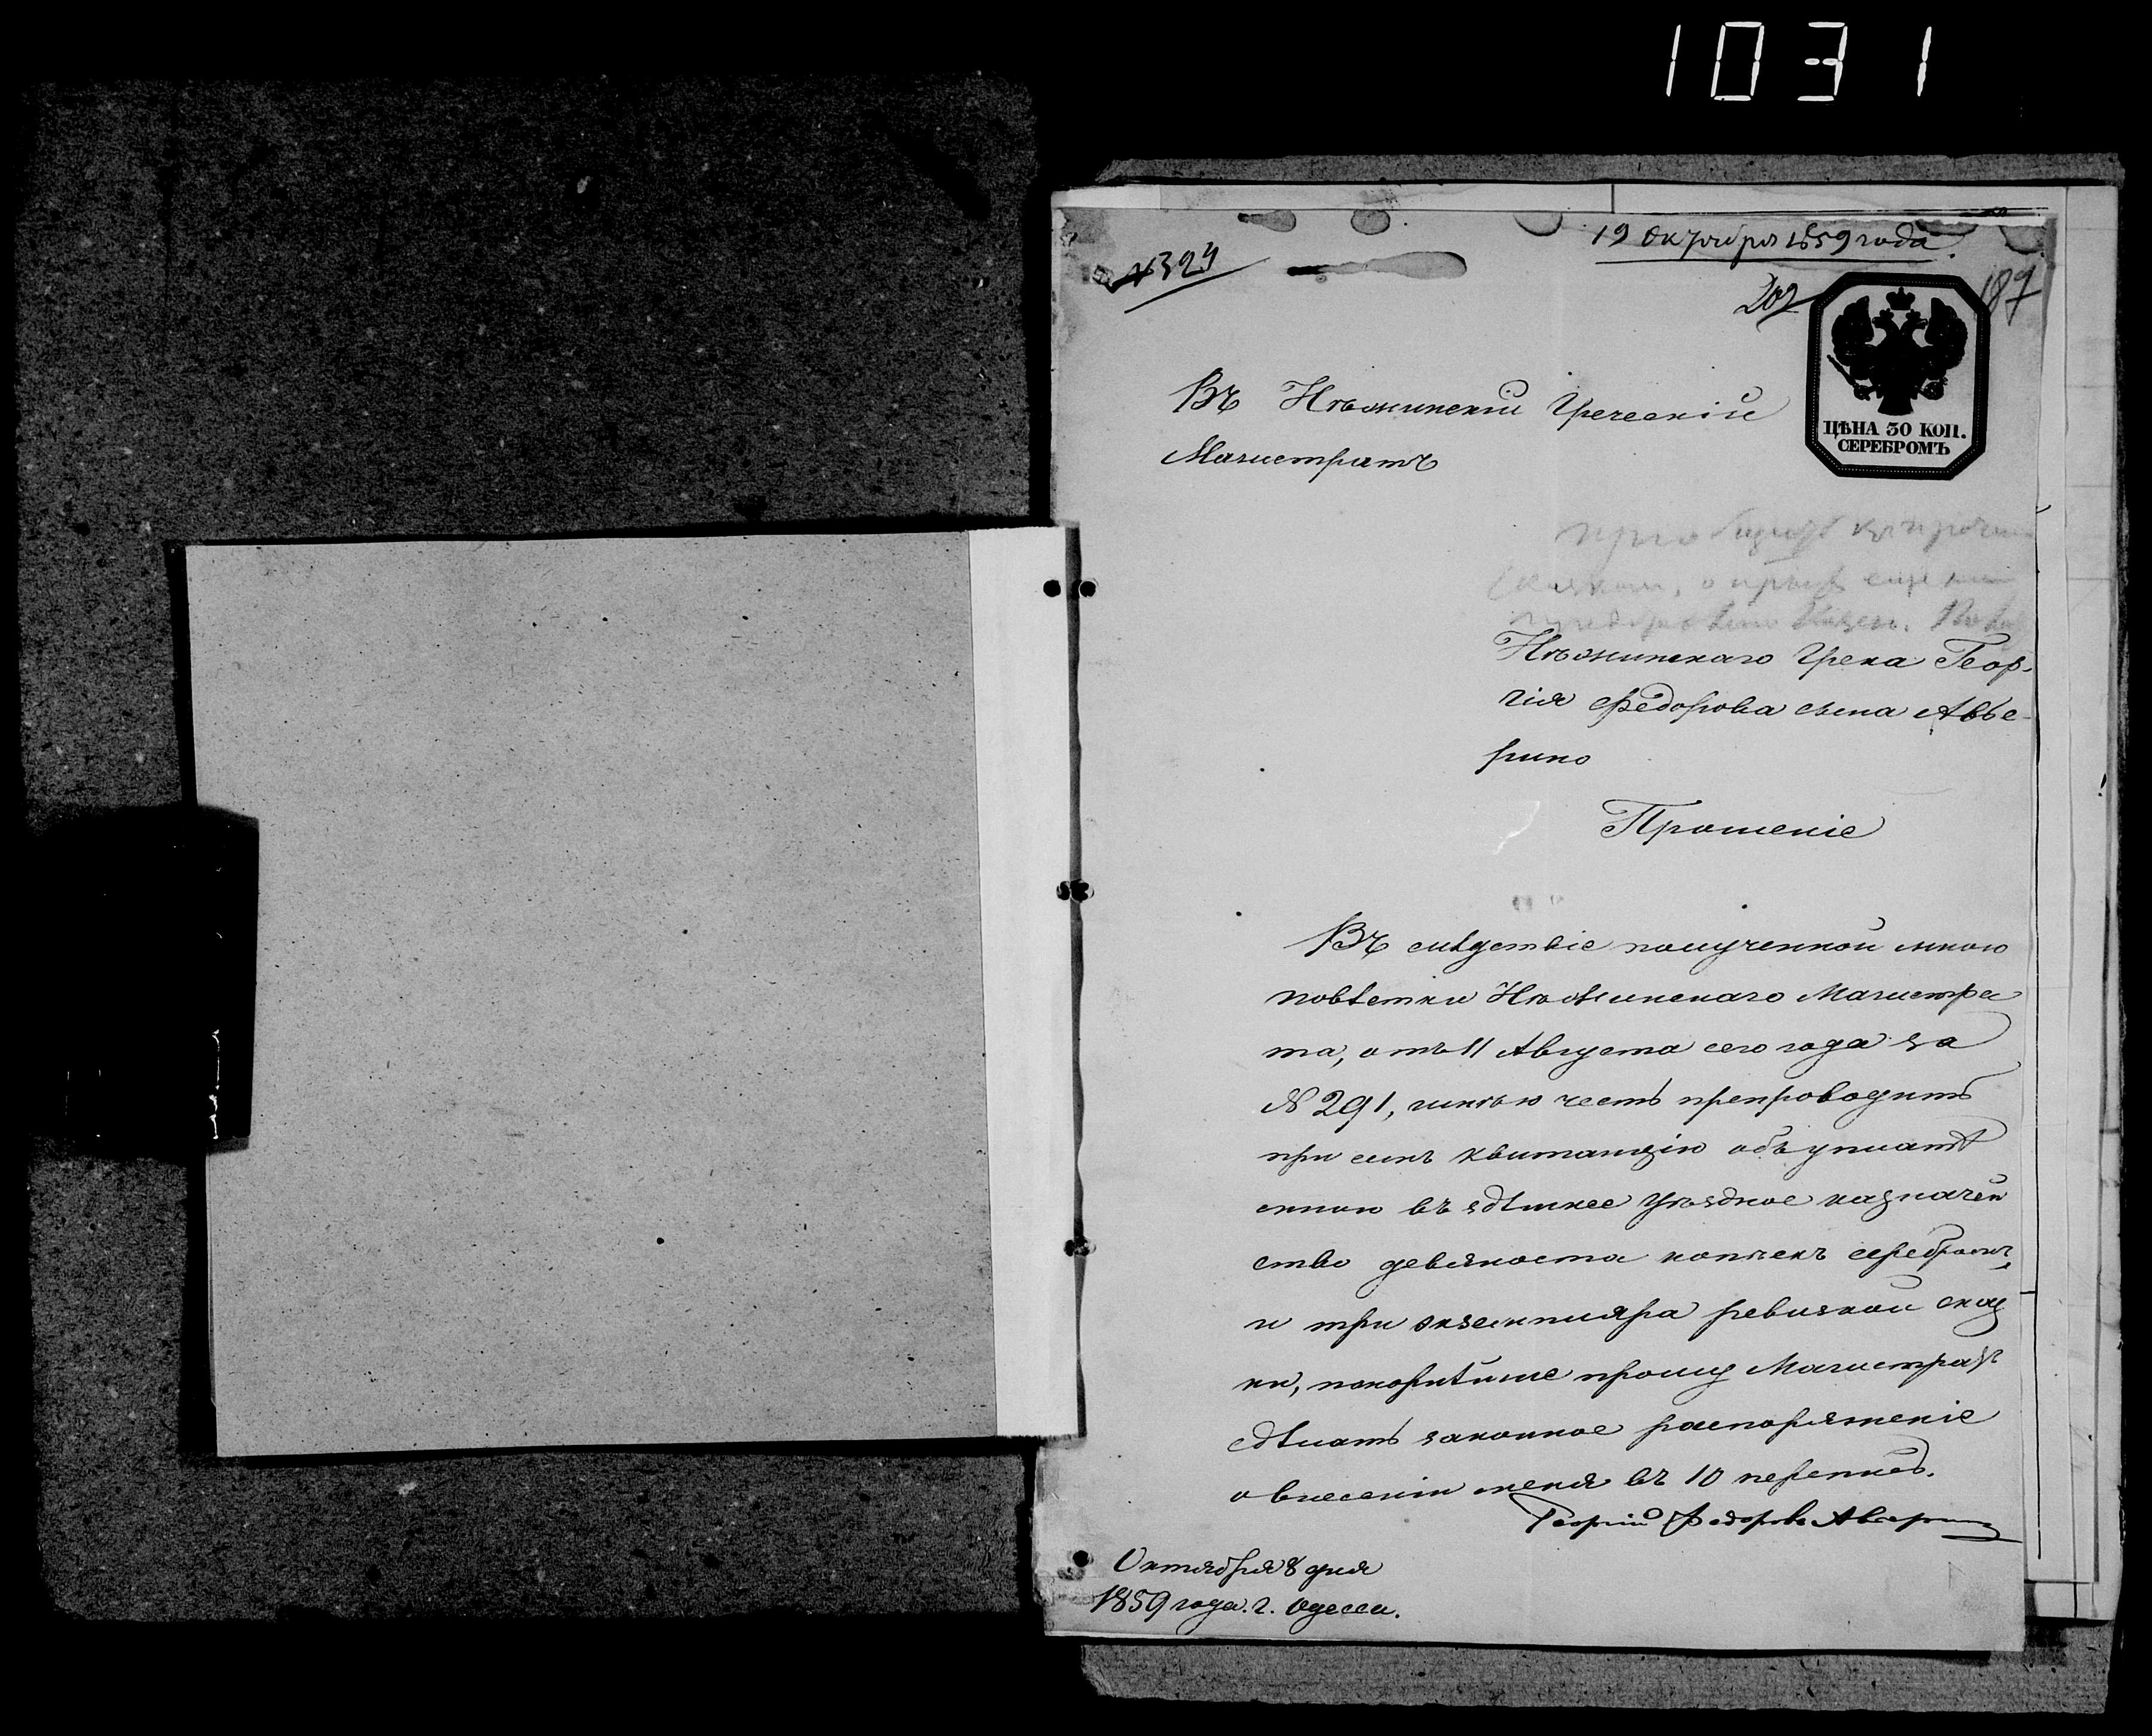 1031
19 Октября 1859 года.
№ 324
207
187
ЦѢНА 30 КОП.
СЕРЕБРОМЪ
Въ Нѣжинскій Греческій
Магистратъ
Нѣжинскаго Грека Геор-
гія Федорова сына Авье-
рино
Прошеніе
Въ слѣдствіе полученной мною
повѣстки Нѣжинскаго Магистра
та, отъ 11 Августа сего года за
№ 291, имѣю честь препроводить
при семъ квитанцію объ уплатѣ
мною въ здѣшнее Уѣздное казначей
ство девяноста копѣекъ серебромъ,
и три экземпляра ревизкой сказ
ки, покорнѣйше прошу Магистратъ
сдѣлать законное распоряженіе
о внесеніи меня въ 10 перепись.
Георгій Федоровъ Авьерино
Октября 8 дня
1859 года. г. Одесса.